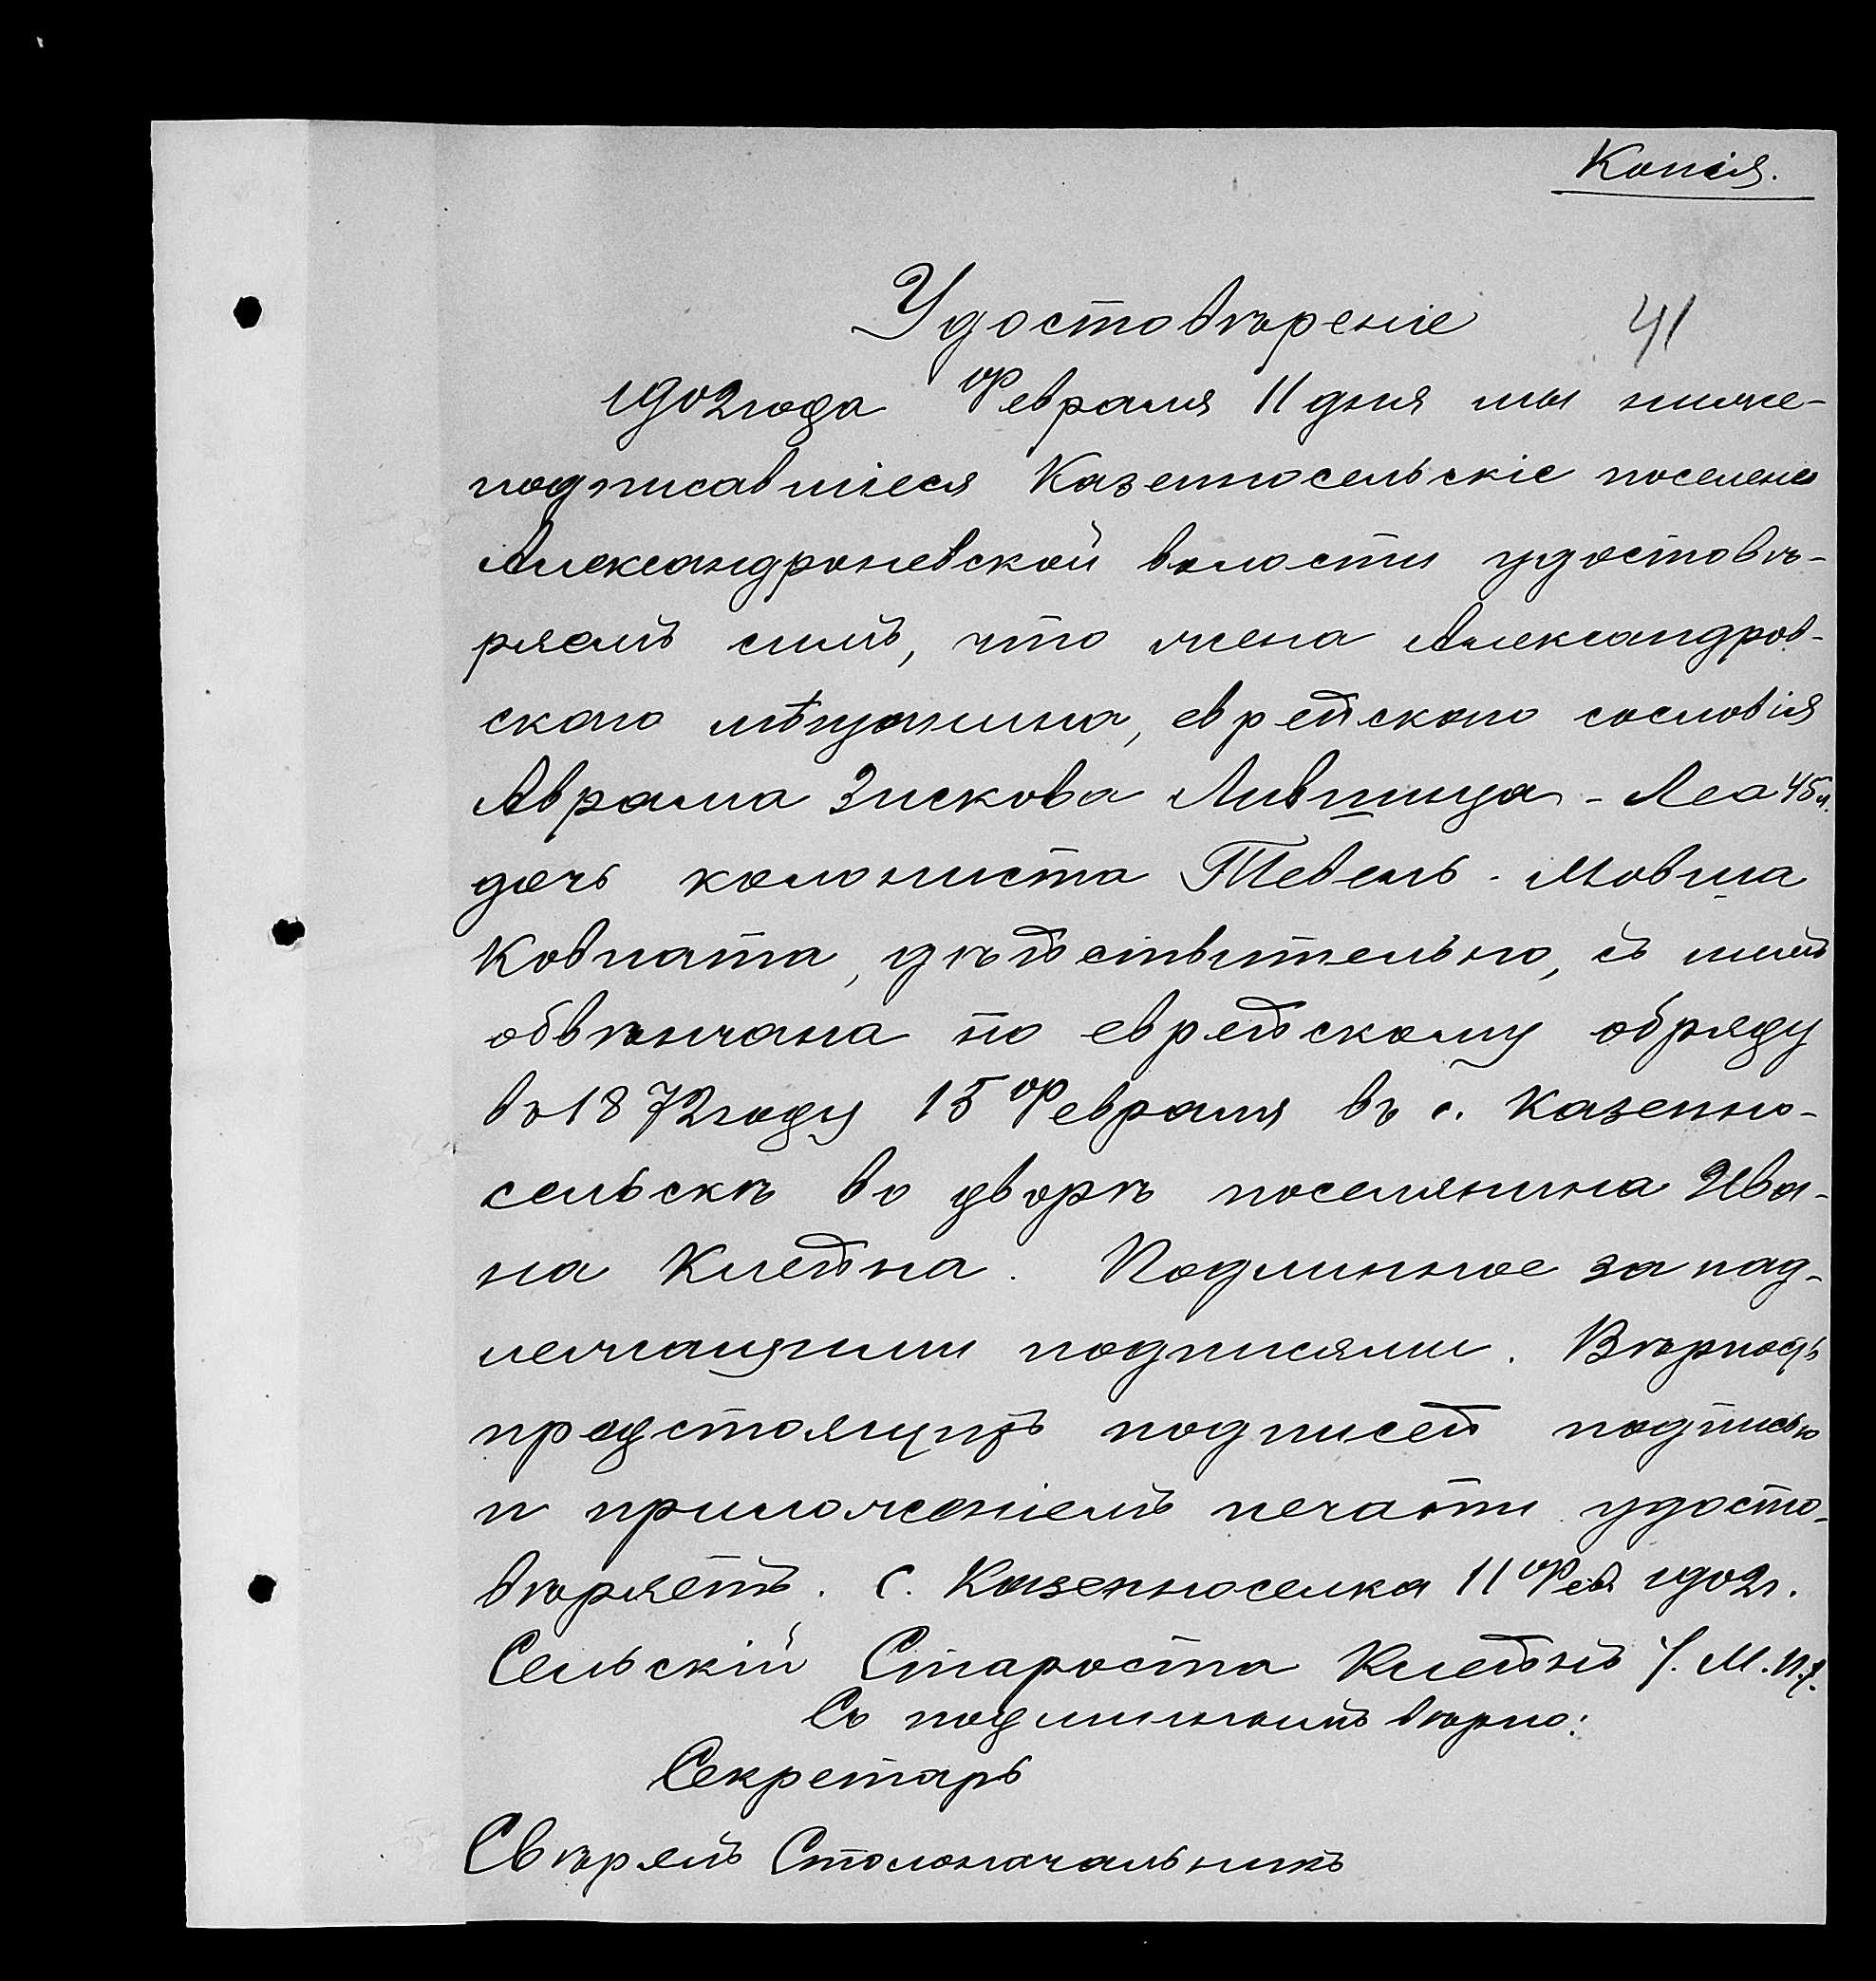 Копія.
Удостовѣреніе
41
1902 года Февраля 11 дня мы ниже-
подписавшіеся Казенносельскіе поселене
Александроневской волости удостовѣ-
ряемъ симъ, что жена Александров-
скаго мѣщанина, еврейскаго сословія
Аврама Зискова Лившица - Леа 45 л.
дочь колониста Тевель-Мовша
Ковната, дѣйствительно, съ нимъ
обвѣнчана по еврейскому обряду
въ 1872 году 15 Февраля въ с. Казенно-
сельскѣ во дворѣ поселянина Ива-
на Клейна. Подлинное за над-
лежащими подписями. Вѣрность
предстоящихъ подписей подписью
и приложеніемъ печати удосто-
вѣряетъ. с. Казенноселка 11 Фев 1902 г.
Сельскій Староста Клейнъ /. М. П./.
Съ подлиннымъ вѣрно:
Секретарь
Свѣрялъ Столоначальникъ